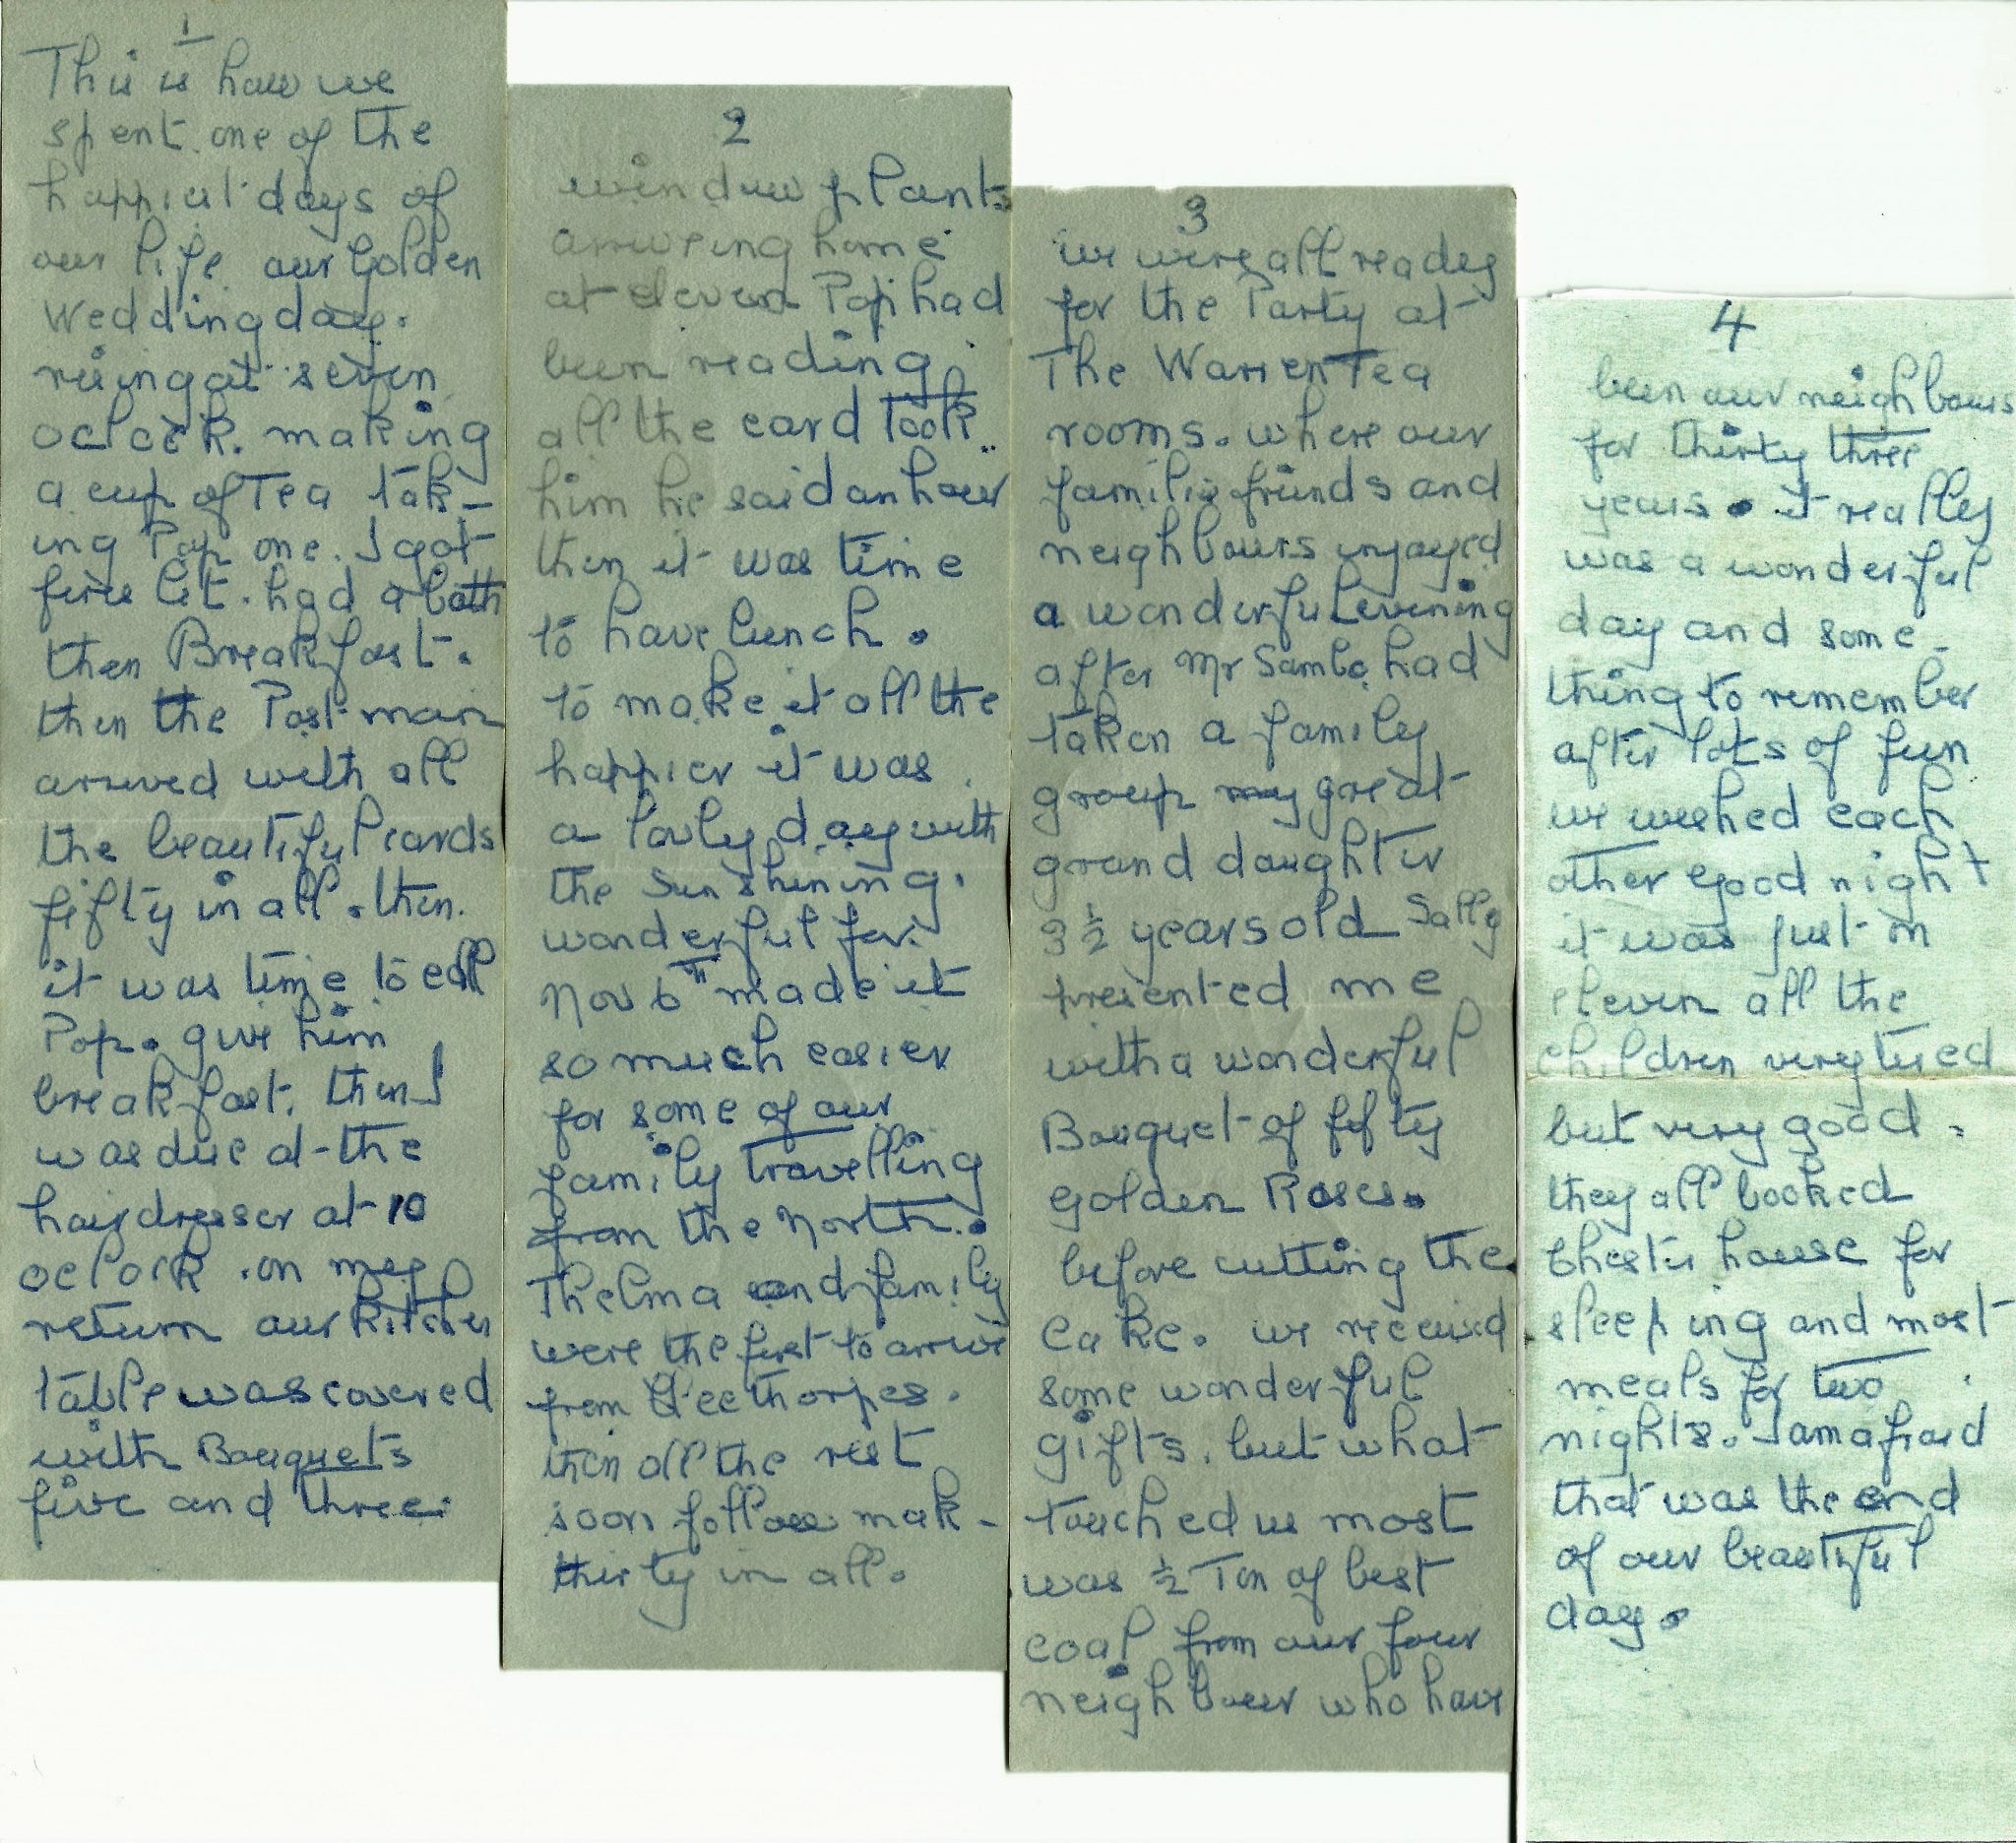 1
This is how we
spent one of the
happiest days of
our life our Golden
Wedding day.
rising at seven
oclock. making
a cup of Tea tak-
ing Pop one. I got
fire lit. had a bath
then Breakfast.
then the Postman
arrived with all
the beautiful cards
fifty in all. then.
it was time to call
Pop. give him
breakfast. then I
was due at the
hairdresser at 10
oclock. on my
return our kitchen
table was covered
with Bouquets
five and three
2
window plants
arriveing home
at eleven Pop had
been reading
all the card took
him he said an hour
then it was time
to have lunch.
to make it all the
happier it was
a lovly day with
the Sun shining.
wonderful for.
Nov 6th made it
so much easier
for some of our
family travelling
from the North.
Thelma and family
were the first to arrive
from Cleethorpes.
then all the rest
soon follow mak-
thirty in all.
3
we were all ready
for the Party at
The Warren Tea
rooms. where our
familis friends and
neighbours injoyed
a wonderful evening
after Mr Sambo had
taken a family
group my great
grand daughter
3½ years old Sally
presented me
with a wonderful
Bouquet of fifty
golden Roses.
before cutting the
cake. we received
some wonderful
gifts. but what
touched us most
was ½ Ton of best
coal from our four
neighbour who have
4
been our neighbours
for thirty three
years. it really
was a wonderful
day and some-
thing to remember
after lots of fun
we wished each
other good night
it was just on
eleven all the
children very tired
but very good.
they all booked
Chester house for
sleeping and most
meals for two
nights. I am afraid
that was the end
of our beautiful
day.